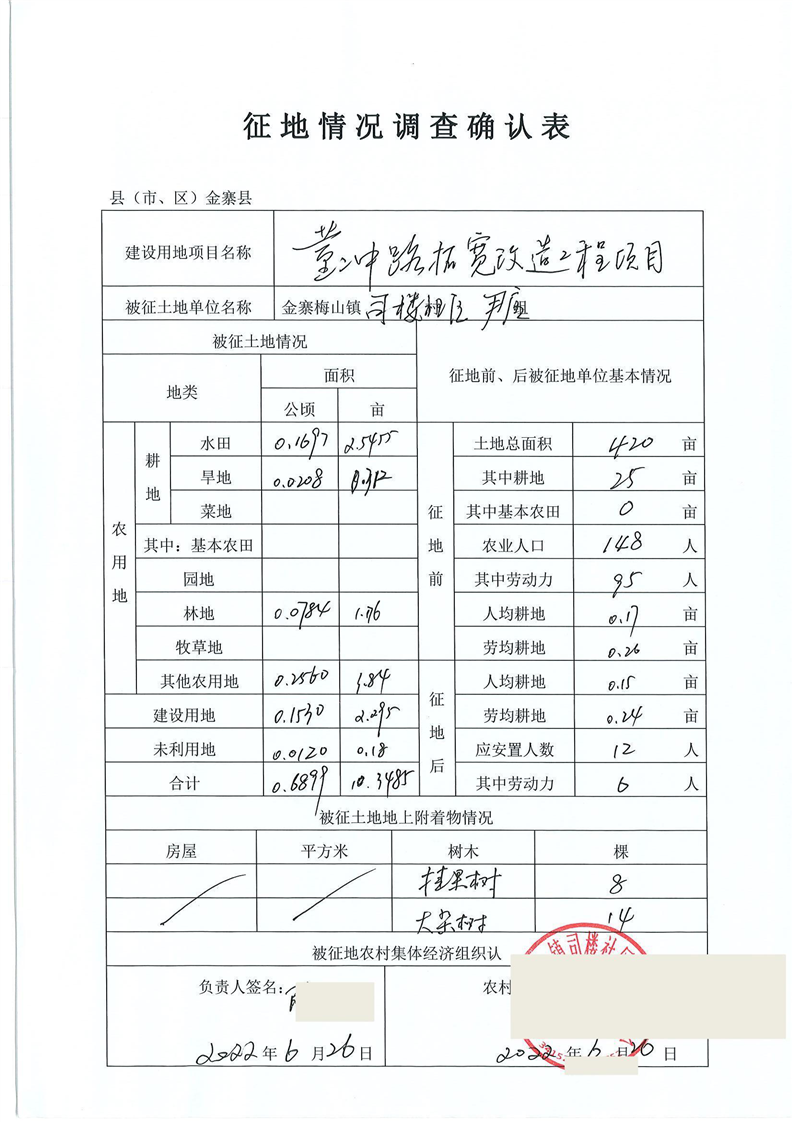 征地情况调查确认表
县（市、区）金寨县
建设用地项目名称 董冲路拓宽改造工程项目
被征土地单位名称 金寨梅山镇司楼社区 尹庄组
被征土地情况 征地前、后被征地单位基本情况
地类 面积
公顷 亩
农用地 耕地 水田 0.1697 2.5455 征地前 土地总面积 420 亩
旱地 0.0208 0.312 其中耕地 25 亩
菜地 其中基本农田 0 亩
其中：基本农田 农业人口 148 人
园地 其中劳动力 95 人
林地 0.0784 1.176 人均耕地 0.17 亩
牧草地 劳均耕地 0.26 亩
其他农用地 0.2560 3.84 征地后 人均耕地 0.15 亩
建设用地 0.1530 2.295 劳均耕地 0.24 亩
未利用地 0.0120 0.18 应安置人数 12 人
合计 0.6899 10.3485 其中劳动力 6 人
被征土地地上附着物情况
房屋 平方米 树木 棵
挂果树 8
大杂树 14
被征地农村集体经济组织认
镇司楼社区
负责人签名： 农村
2022年6月26日 2022年6月26日